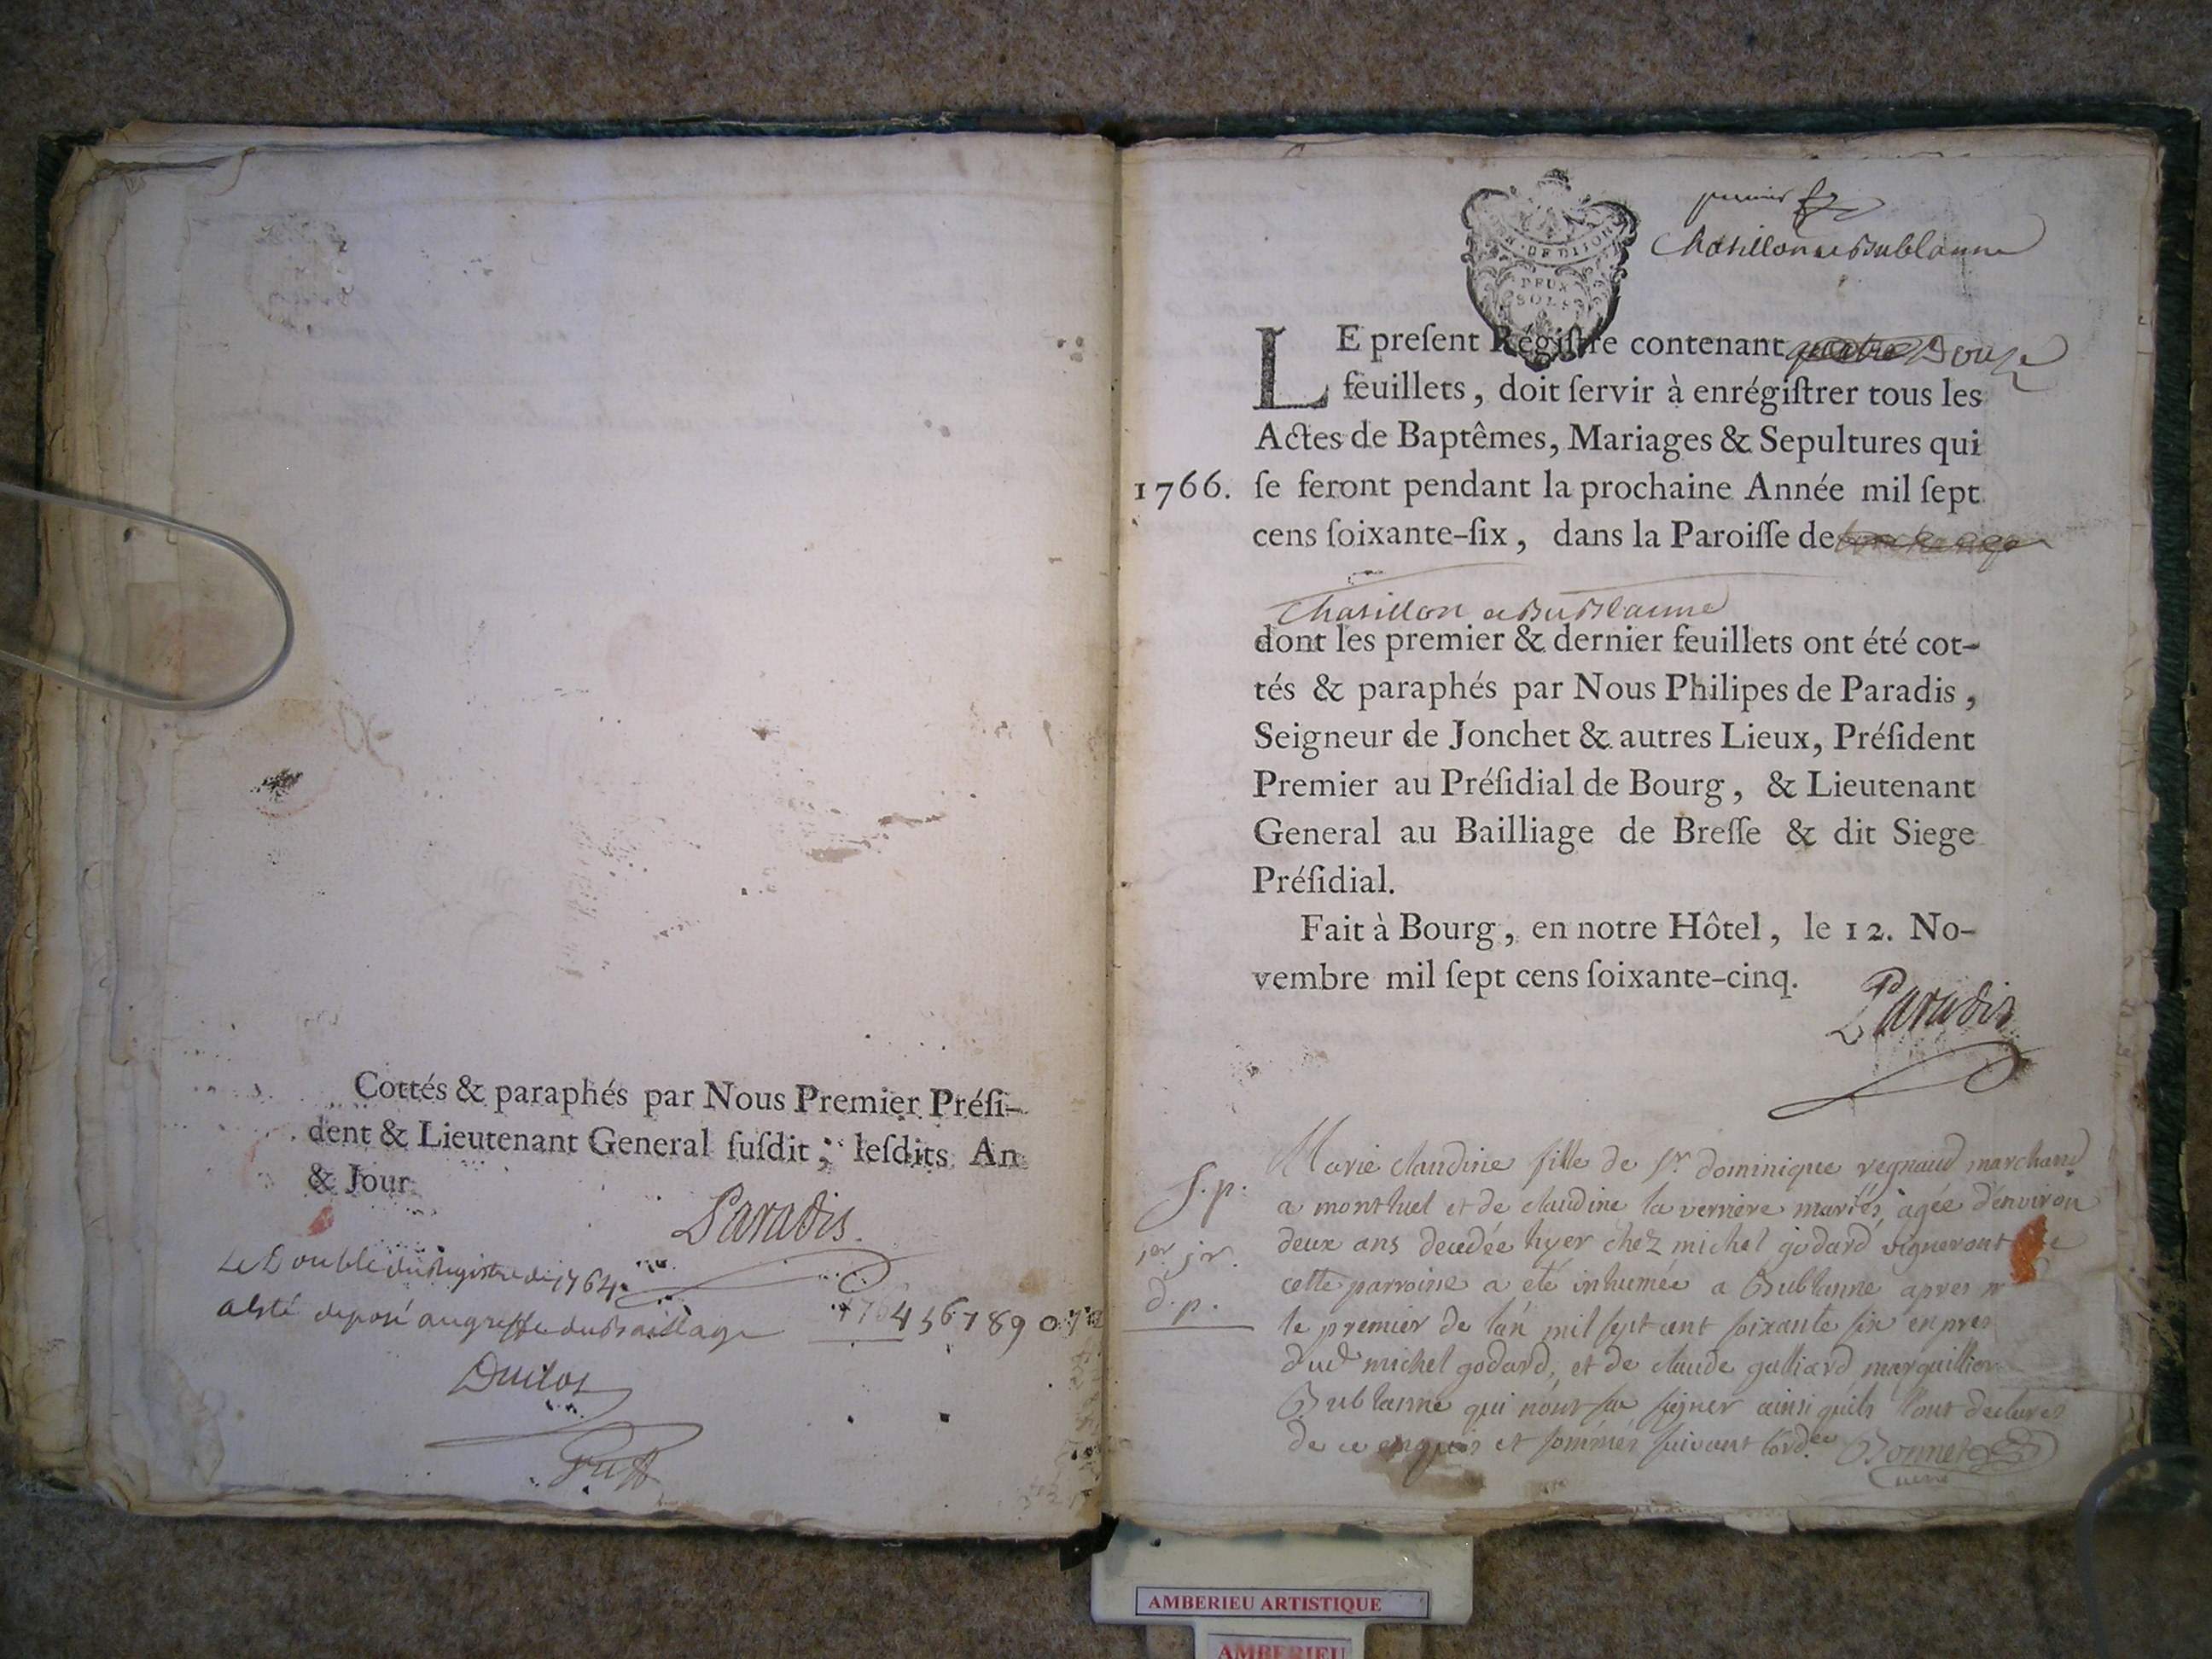 Cottés & paraphés par Nous Premier Préſi-
dent & Lieutenant General ſuſdit, leſdits An
& Jour
Paradis.
Le Double du Registre de 1764
a esté deposé au greffe du Bailliage
1764 5 6 7 8 9 0
Duclos
premier
Chatillon et Bublanne
DE DIJON
DEUX
SOLS
LE preſent Régiſtre contenant quatre Douze
feuillets, doit ſervir à enrégiſtrer tous les
Actes de Baptêmes, Mariages & Sepultures qui
1766. ſe feront pendant la prochaine Année mil ſept
cens ſoixante-ſix, dans la Paroiſſe de
Chatillon et Bublanne
dont les premier & dernier feuillets ont été cot-
tés & paraphés par Nous Philipes de Paradis,
Seigneur de Jonchet & autres Lieux, Préſident
Premier au Préſidial de Bourg, & Lieutenant
General au Bailliage de Breſſe & dit Siege
Préſidial.
Fait à Bourg, en notre Hôtel, le 12. No-
vembre mil ſept cens ſoixante-cinq.
Paradis
Marie claudine fille de Sr dominique regnaud marchand
S. p. a montluel et de claudine la verriere mariés agée denviron
1er jr. deux ans decedée hyer chez michel godard vigneront de
d. p. cette parroisse a eté inhumée a Bublanne apres
le premier de lan mil sept cent soixante six en pres
dud michel godard, et de claude galliard marguillier
Bublanne qui nont su signer ainsi quils lont declarez
de ce enquis et sommés suivant lordce Bonnet
curé
AMBERIEU ARTISTIQUE
AMBERIEU